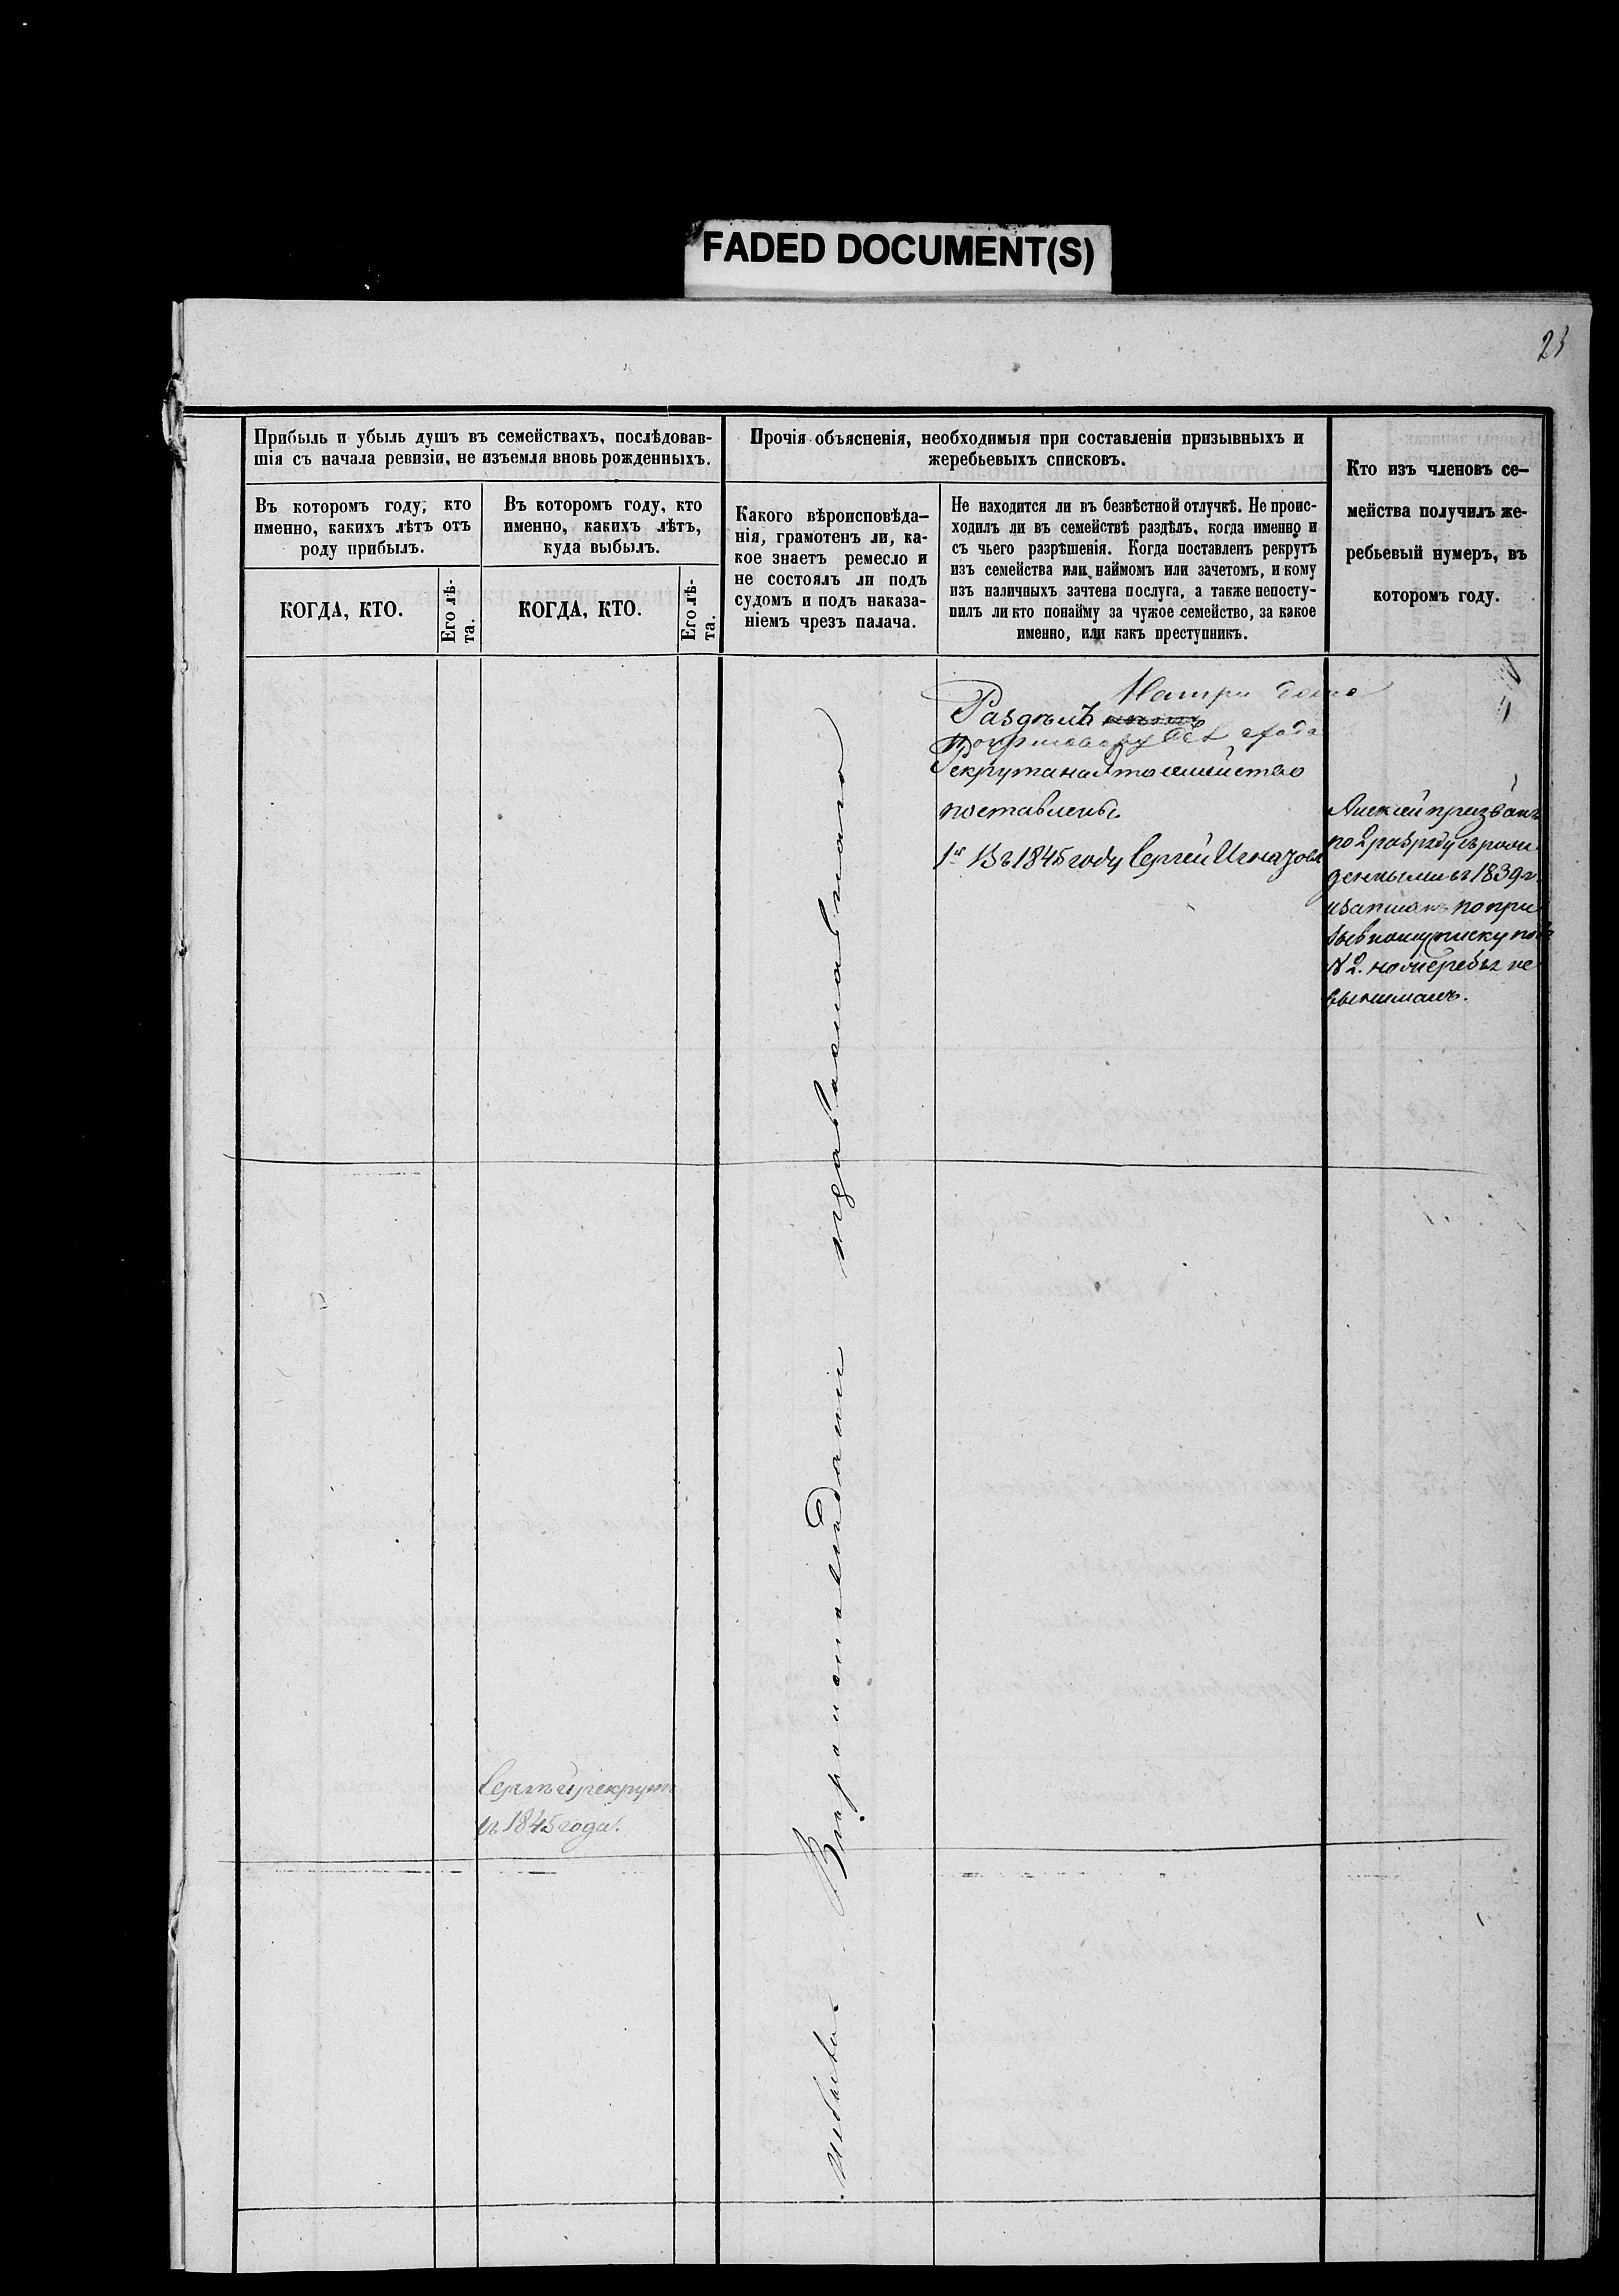 FADED DOCUMENT(S)
23
Прибыль и убыль душъ въ семействахъ, послѣдовав-
шія съ начала ревизіи, не изъемля вновь рожденныхъ.
Въ которомъ году, кто
именно, какихъ лѣтъ отъ
роду прибылъ.
КОГДА, КТО.
Его лѣ-
та.
Въ которомъ году, кто
именно, какихъ лѣтъ,
куда выбылъ.
КОГДА, КТО.
Его лѣ-
та.
Прочія объясненія, необходимыя при составленіи призывныхъ и
жеребьевыхъ списковъ.
Какого вѣроисповѣда-
нія, грамотенъ ли, ка-
кое знаетъ ремесло и
не состоялъ ли подъ
судомъ и подъ наказа-
ніемъ чрезъ палача.
Не находится ли въ безвѣстной отлучкѣ. Не проис-
ходилъ ли въ семействѣ раздѣлъ, когда именно и
съ чьего разрѣшенія. Когда поставленъ рекрутъ
изъ семейства или наймомъ или зачетомъ, и кому
изъ наличныхъ зачтена послуга, а также непосту-
пилъ ли кто понайму за чужое семейство, за какое
именно, или какъ преступникъ.
Кто изъ членовъ се-
мейства получилъ же-
ребьевый нумеръ, въ
которомъ году.
На три
Раздѣлъ
Рекрута на это семейство
поставлены.
1й Въ 1845 году Сергей
призванъ
по 2 разряду съ рож-
денными въ 1839 г.
по при
зывному списку подъ
№ 2. но жеребья не
вынималъ.
Сергѣй рекрутъ
въ 1845 года.
Вѣроисповѣданіе православнаго